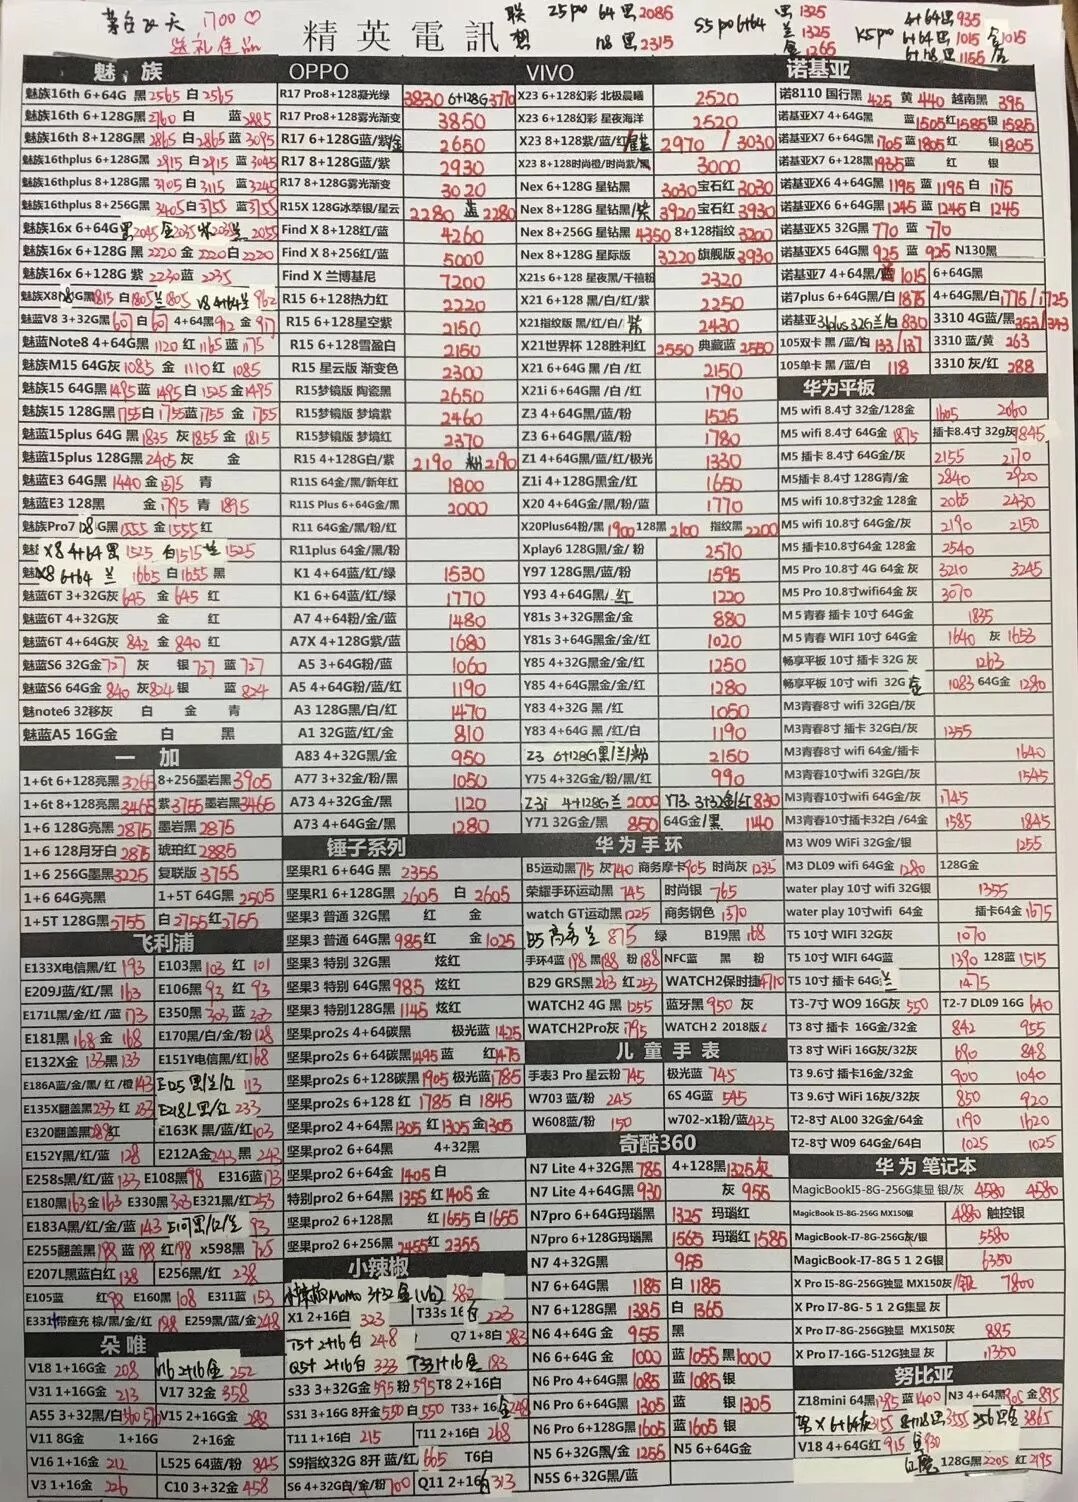 茅台飞天 1700♡
送礼佳品
精英電訊
联想 Z5pro 64黑2085
128黑2315
S5pro6+64 黑1325
兰1325
金1265
K5pro 4+64黑935
6+64黑1015 金1015
6+128黑1155
魅族
魅族16th 6+64G 黑2565 白2565
魅族16th 6+128G黑2760 白 蓝2885
魅族16th 8+128G黑2865 白2865 蓝3095
魅族16thplus 6+128G黑2915 白2915 蓝3045
魅族16thplus 8+128G黑3105 白3115 蓝3245
魅族16thplus 8+256G黑3405白3755 蓝3755
魅族16x 6+64G黑2045金2035紫2035兰2055
魅族16x 6+128G 黑2220 金2220白2220
魅族16x 6+128G 紫2230蓝2235
魅族X8128G黑1815 白1805兰1805 V8 4+64兰962
魅蓝V8 3+32G黑607白607 4+64黑912 金917
魅蓝Note8 4+64G黑1120 红1165蓝1175
魅族M15 64G灰1085 金1110红1085
魅族15 64G黑1495蓝1495白1525金1495
魅族15 128G黑1755白1755蓝1755 金1755
魅蓝15plus 64G 黑1835 灰1855金1815
魅蓝15plus 128G黑2405灰 金
魅蓝E3 64G黑1440金1575 青
魅蓝E3 128黑 金1795 青1895
魅族Pro7 128G黑1555 金1555红
X8 4+64黑1525 白1515兰1525
X8 6+64兰 1665白1655黑
魅蓝6T 3+32G灰645 金645 红
魅蓝6T 4+32G灰 金 红
魅蓝6T 4+64G灰842 金840红
魅蓝S6 32G金727灰 银727 蓝727
魅蓝S6 64G金840灰824银 蓝824
魅note6 32移灰 白 金 青
魅蓝A5 16G金 白 黑
一加
1+6t 6+128亮黑3265 8+256墨岩黑3905
1+6t 8+128亮黑3465 紫3755墨岩黑3465
1+6 128G亮黑2875 墨岩黑2875
1+6 128月牙白2875 琥珀红2885
1+6 256G墨黑3225 复联版3755
1+6 64G亮黑 1+5T 64G黑2505
1+5T 128G黑2755 白2755红2755
飞利浦
E133X电信黑/红193 E103黑103 红101
E209J蓝/红/黑163 E106黑93 红93
E171L黑/金/红/蓝173 E350黑303蓝303
E181黑168金168 E170黑/白/金/粉128
E132X金133黑133 E151Y电信黑/红168
E186A蓝/金/黑/红/橙143 E105黑/兰/红113
E135X翻盖黑233红233 E218L黑/红233
E320翻盖黑288红 E163K 黑/蓝/红103
E152Y黑/红/蓝128 E212A金243黑243
E258s黑/红/蓝133 E108黑98 E316蓝173
E180黑163金163 E330黑303E321黑/红253
E183A黑/红/金/蓝143 E101黑/红/兰93
E255翻盖黑198蓝198红198 x598黑
E207L黑蓝白红138 E256黑/红238
E105蓝 红98 E160黑108 E311蓝153
E331+带座充 棕/黑/金/红198 E259黑/蓝/金248
朵唯
V18 1+16G金208 V16 2+16金252
V31 1+16G金213 V17 32金358
A55 3+32黑/白 V15 2+16G金288
V11 8G金 1+16G 2+16金
V16 1+16金212 L525 64蓝/粉845
V3 1+16金226 C10 3+32金458
OPPO
R17 Pro8+128凝光绿3830 6+128G3770
R17 Pro8+128雾光渐变3850
R17 6+128G蓝/紫/金2650
R17 8+128G蓝/紫2930
R17 8+128G雾光渐变3020
R15X 128G冰萃银/星云2280蓝2280
Find X 8+128红/蓝4260
Find X 8+256红/蓝5000
Find X 兰博基尼7200
R15 6+128热力红2220
R15 6+128星空紫2150
R15 6+128雪盈白2150
R15 星云版 渐变色2300
R15梦镜版 陶瓷黑2650
R15梦镜版 梦境紫2460
R15梦镜版 梦境红2370
R15 4+128G白/紫2190 粉2190
R11S 64金/黑/新年红1800
R11S Plus 6+64G金/黑2000
R11 64G金/黑/粉/红
R11plus 64金/黑/粉
K1 4+64蓝/红/绿1530
K1 6+64蓝/红/绿1770
A7 4+64粉/金/蓝1480
A7X 4+128G紫/蓝1680
A5 3+64G粉/蓝1060
A5 4+64G粉/蓝/红1190
A3 128G黑/白/红1470
A1 32G蓝/红/金810
A83 4+32G黑/金950
A77 3+32金/粉/黑1050
A73 4+32G金/黑1120
A73 4+64G金/黑1280
锤子系列
坚果R1 6+64G 黑2355
坚果R1 6+128G黑2605白2605
坚果3 普通 32G黑 红 金
坚果3 普通 64G黑985红 金1025
坚果3 特别 32G黑 炫红
坚果3 特别 64G黑985炫红
坚果3 特别128G黑1145炫红
坚果pro2s 4+64碳黑 极光蓝1425
坚果pro2s 6+64碳黑1495蓝 红1475
坚果pro2s 6+128碳黑1905极光蓝1785
坚果pro2s 6+128 红1785 白1845
坚果pro2 4+64黑1305红1305金1305
坚果pro2 6+64黑 4+32黑
坚果pro2 6+64金1405白
特别pro2 6+64黑1355红1405金
坚果pro2 6+128黑 红1655白1655
坚果pro2 6+256黑2455红2355
小辣椒
小辣椒MOMO 3+32金(V6)382
X1 2+16白323 T33s 16白223
T5+ 2+16白248 Q7 1+8白282
Q5+ 2+16白333 T33 1+16金183
s33 3+32G金595粉595T8 2+16白
S31 3+16G 8开金550白550 T33+ 16金248
T11 1+16白215 T11 2+16白268
S9指纹32G 8开 蓝/红665 T6白
S6 4+32G白/金/粉700 Q11 2+16白313
VIVO
X23 6+128幻彩 北极晨曦2520
X23 6+128幻彩 星夜海洋2520
X23 8+128紫/蓝/红2970/3030
X23 8+128时尚橙/时尚紫/黑3000
Nex 6+128G 星钻黑3030宝石红3030
Nex 8+128G 星钻黑/紫3920宝石红3930
Nex 8+256G 星钻黑4350 8+128指纹3200
Nex 8+128G 星际版3220旗舰版3930
X21s 6+128 星夜黑/千禧粉2320
X21 6+128 黑/白/红/紫2250
X21指纹版 黑/红/白/紫2430
X21世界杯 128胜利红2550 典藏蓝2550
X21 6+64G黑/白/红2150
X21i 6+64G黑/白/红1790
Z3 4+64G黑/蓝/粉1525
Z3 6+64G黑/蓝/粉1780
Z1 4+64G黑/蓝/红/极光1330
Z1i 4+128G黑金/红1650
X20 4+64G金/黑/粉/蓝1770
X20Plus64粉/黑1900 128黑2100 指纹黑2200
Xplay6 128G黑/金/粉2570
Y97 128G黑/蓝/粉1595
Y93 4+64G黑/红1220
Y81s 3+32G黑金/金880
Y81s 3+64G黑金/金/红1020
Y85 4+32G黑金/金/红1250
Y85 4+64G黑金/金/红1280
Y83 4+32G 黑/红1050
Y83 4+64G 黑/红/白1190
Z3 6+128G黑/兰/粉2150
Y75 4+32G金/粉/黑/红990
Z3i 4+128G兰2000 Y73 3+32金/红830
Y71 32G金/黑850 64G金/黑1140
华为手环
B5运动黑715灰740 商务摩卡905 时尚灰1235
荣耀手环运动黑145 时尚银765
watch GT运动黑1225 商务钢色1370
B5 高秀 兰875 绿 B19黑168
手环4蓝198黑188 粉188 NFC蓝 黑 粉
B29 GRS黑263红253 WATCH2保时捷4710
WATCH2 4G 黑1255 蓝牙黑950灰
WATCH2Pro灰1795 WATCH 2 2018版
儿童手表
手表3 Pro 星云粉745 极光蓝745
W703 蓝/粉245 6S 4G蓝545
W608蓝/粉150 w702-x1粉/蓝435
奇酷360
N7 Lite 4+32G黑785 4+128黑1325灰
N7 Lite 4+64G黑930 灰955
N7pro 6+64G玛瑙黑1325玛瑙红
N7pro 6+128G玛瑙黑1565玛瑙红1585
N7 4+32G黑955
N7 6+64G黑1185白1185
N7 6+128G黑1385白1365
N6 4+64G 金955黑
N6 6+64G 金1000蓝1055黑1000
N6 Pro 4+64G黑1085蓝1085银
N6 Pro 6+64G黑1305蓝 银1305
N6 Pro 6+128G黑1605蓝1605银
N5 6+32G黑/金1255 N5 6+64G金
N5S 6+32G黑/蓝
诺基亚
诺8110 国行黑425 黄440 越南黑395
诺基亚X7 4+64G黑 蓝1505红1585银1585
诺基亚X7 6+64G黑1705蓝1805红 银1805
诺基亚X7 6+128黑1935蓝 红 银
诺基亚X6 4+64G黑1195蓝1195白1175
诺基亚X6 6+64G黑1245蓝1245白1245
诺基亚X5 32G黑770蓝770
诺基亚X5 64G黑925蓝925 N130黑
诺基亚7 4+64黑/蓝1015 6+64G黑
诺7plus 6+64G黑/白1875 4+64G黑/白1775/1725
诺基亚31plus 32G兰/白830 3310 4G蓝/黑353/343
105双卡 黑/蓝/白133/137 3310 蓝/黄263
105单卡 黑/蓝/白118 3310 灰/红288
华为平板
M5 wifi 8.4寸 32金/128金1605 2060
M5 wifi 8.4寸 64G金1875 插卡8.4寸 32g灰1845
M5 插卡 8.4寸 64G金/灰2155 2170
M5插卡 8.4寸 128G青/金2840 2920
M5 wifi 10.8寸32金 128金2065 2430
M5 wifi 10.8寸 64G金/灰2190 2150
M5 插卡10.8寸64金 128金2540
M5 Pro 10.8寸 4G 64金 灰3210 3245
M5 Pro 10.8寸wifi64金 灰3070
M5青春 插卡 10寸 64G金1835
M5青春 WIFI 10寸 64G金1640灰1653
畅享平板 10寸 插卡 32G 灰1263
畅享平板 10寸 wifi 32G金1083 64G金1280
M3青春8寸 wifi 32G白/灰
M3青春8寸 插卡 32G白/灰1355
M3青春8寸 wifi 64金/插卡1640
M3青春10寸wifi 32G白/灰1545
M3青春10寸wifi 64G金/灰1745
M3青春10寸插卡32白/64金1585 1845
M3 W09 WiFi 32G金/银1255
M3 DL09 wifi 64G金1280 128G金
water play 10寸 wifi 32G银1355
water play 10寸wifi 64金 插卡64金1675
T5 10寸 WIFI 32G灰1070
T5 10寸 WIFI 64G蓝1390 128蓝1515
T5 10寸 插卡 64G兰1475
T3-7寸 WO9 16G灰550 T2-7 DL09 16G640
T3 8寸 插卡 16G金/32金842 955
T3 8寸 WiFi 16G灰/32灰690 848
T3 9.6寸 插卡16金/32金900 1040
T3 9.6寸 WiFi 16灰/32灰850 920
T2-8寸 AL00 32G金/64金1190 1620
T2-8寸 W09 64G金/64白1025 1025
华为笔记本
MagicBookI5-8G-256G集显 银/灰4580 4580
MagicBook I5-8G-256G MX150银4880触控银
MagicBook-I7-8G-256G灰/银5580
MagicBook-I7-8G 5 1 2G银6350
X Pro I5-8G-256G独显 MX150灰/银7800
X Pro I7-8G- 5 1 2G集显 灰
X Pro I7-8G-256G独显 MX150灰885
X Pro I7-16G-512G独显 灰11350
努比亚
Z18mini 64黑1395蓝1400 N3 4+64黑905金895
黑X 6+64灰3155 8+128黑3555 256黑金3865
V18 4+64G红915金930
红魔 128G黑2205红2195